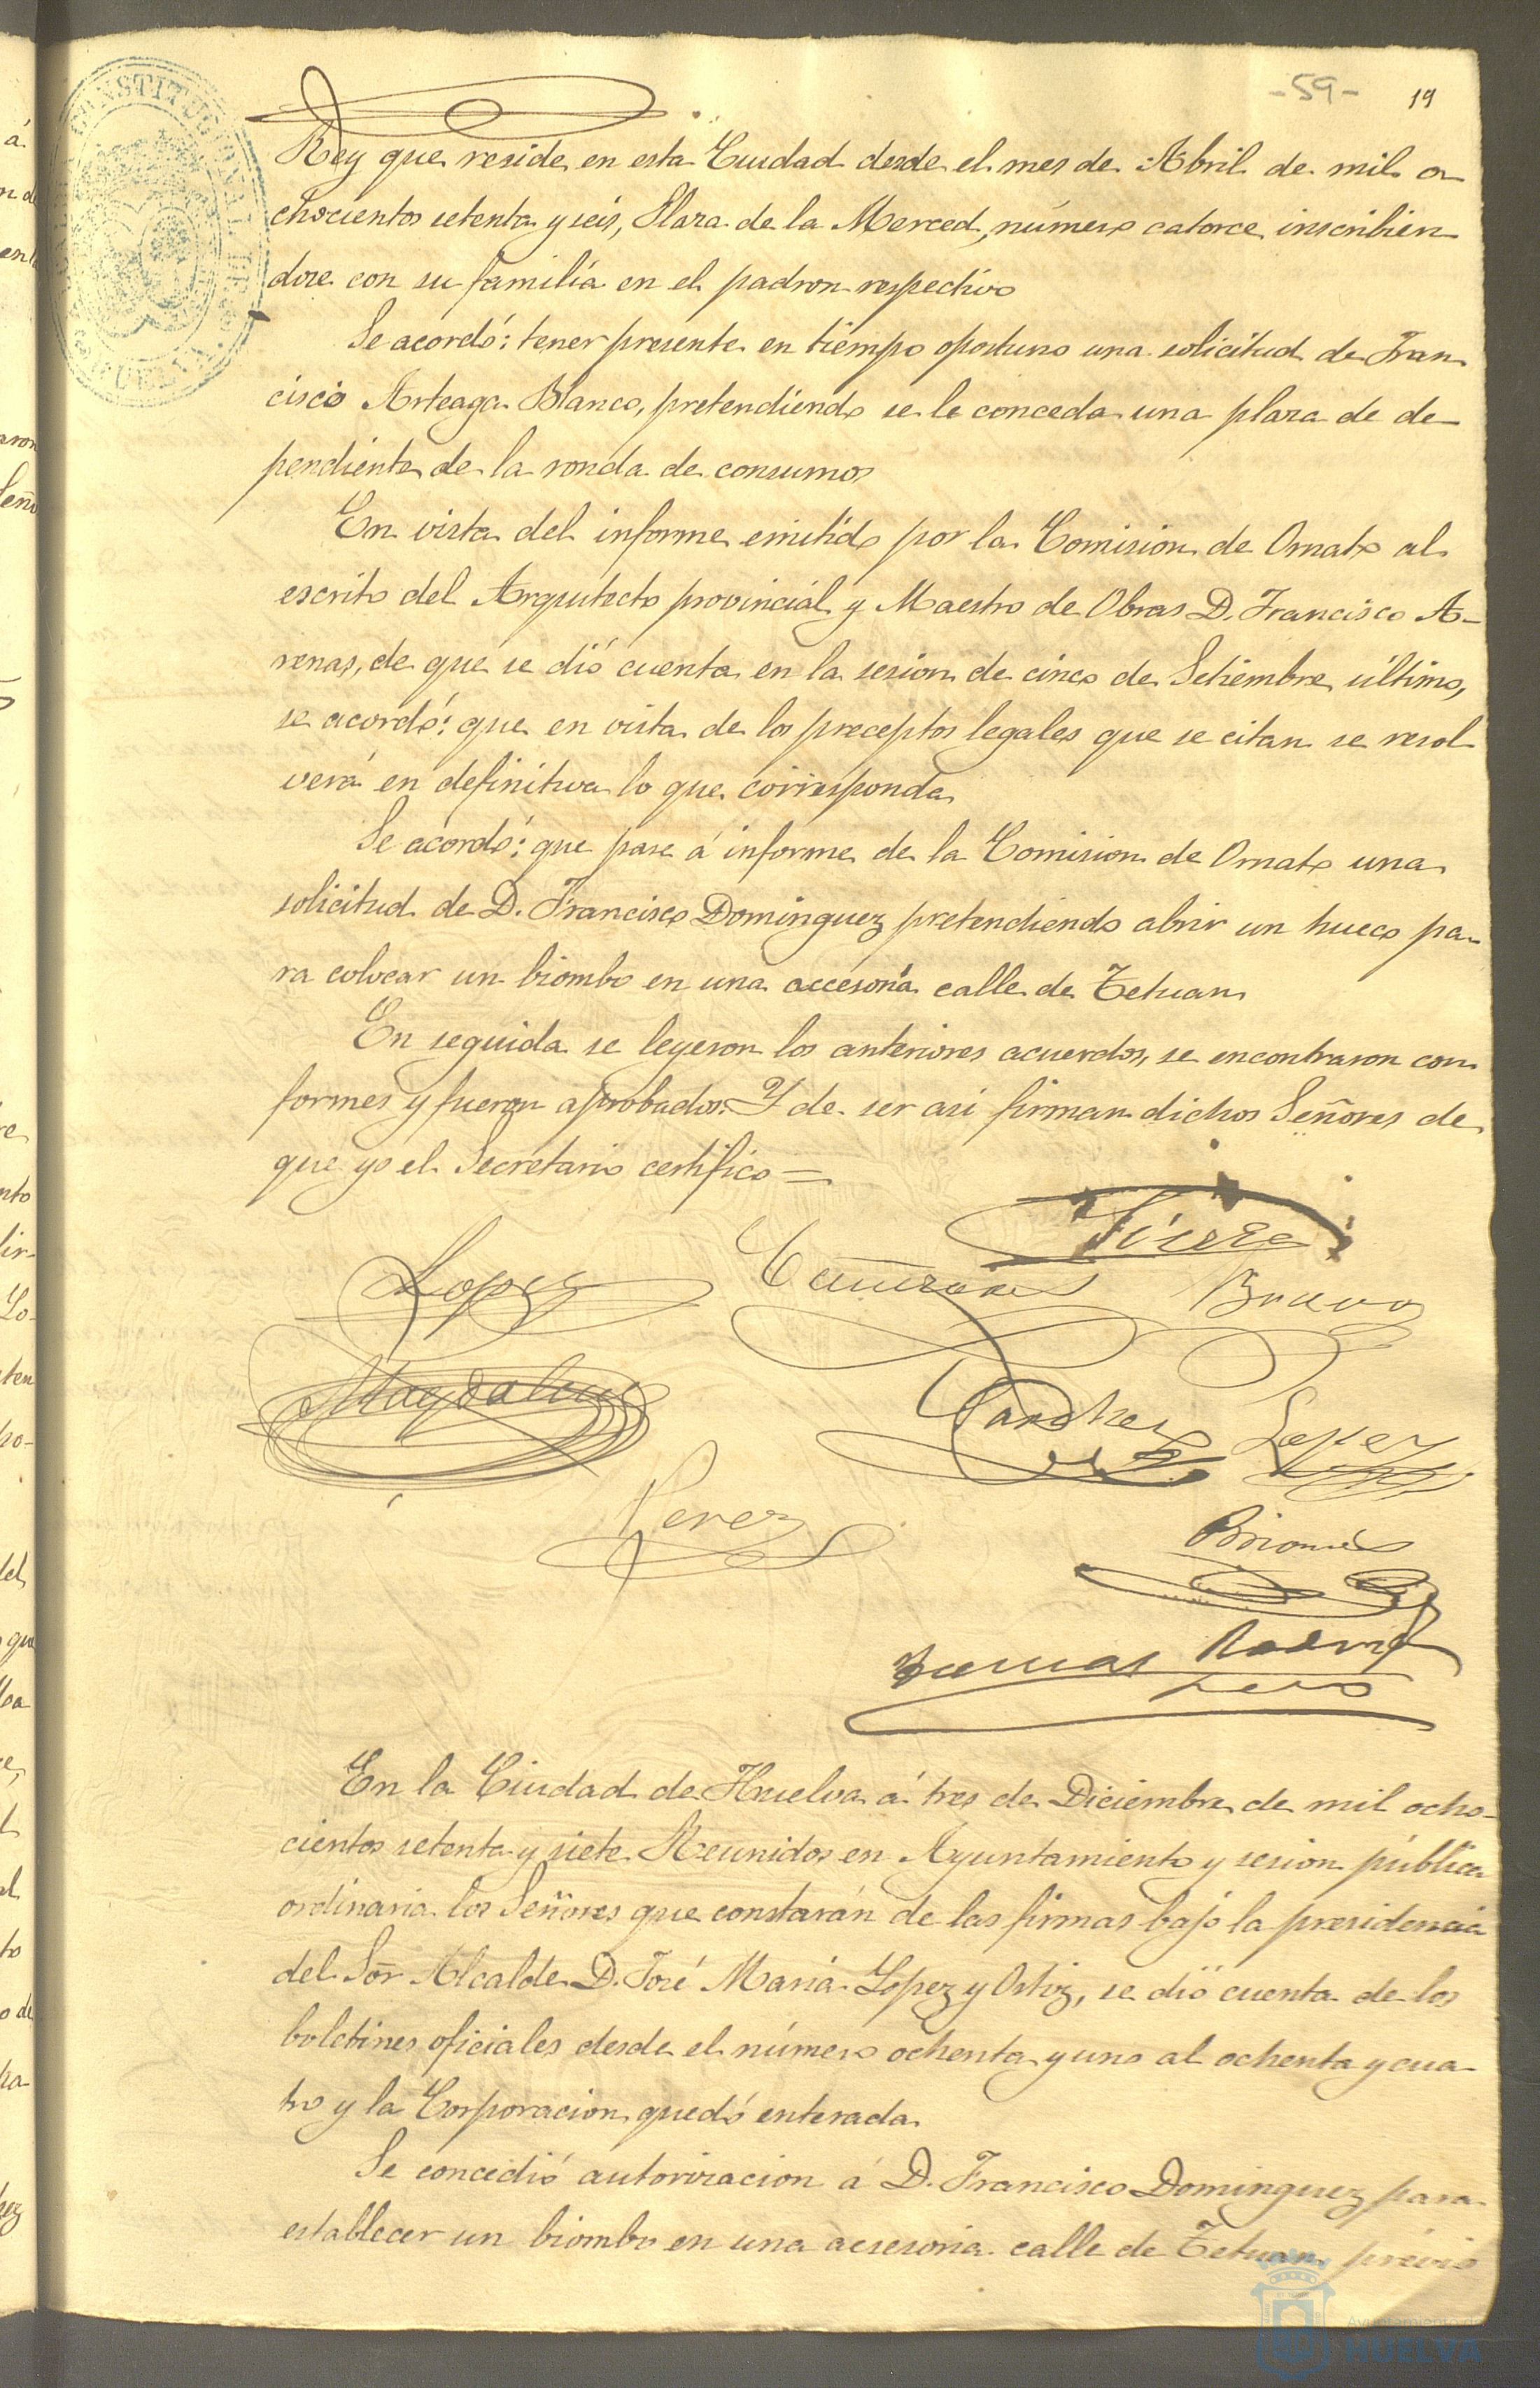 -59- 19
Rey que reside en esta Ciudad desde el mes de Abril de mil o
chocientos setenta y seis, Plaza de la Merced, número catorce inscribien
dose con su familia en el padron respectivo
Se acordó: tener presente en tiempo oportuno una solicitud de Fran
cisco Arteaga Blanco, pretendiendo se le conceda una plaza de de-
pendiente de la ronda de consumos
En vista del informe emitido por la Comision de Ornato al
escrito del Arquitecto provincial y Maestro de Obras D. Francisco A-
renas, de que se dió cuenta en la sesion de cinco de Setiembre último,
se acordó: que en vista de los preceptos legales que se citan se resol
verá en definitiva lo que corresponda
Se acordó: que pase á informe de la Comision de Ornato una
solicitud de D. Francisco Dominguez pretendiendo abrir un hueco pa-
ra colocar un biombo en una accesoria calle de Tetuan
En seguida se leyeron los anteriores acuerdos, se encontraron con
formes y fueron aprobados. Y de ser asi firman dichos Señores de
que yo el Secretario certifico=
Lopez Bravo
Magdalena Sanchez Lopez
Perez
Briones
En la Ciudad de Huelva á tres de Diciembre de mil ocho-
cientos setenta y siete Reunidos en Ayuntamiento y sesion pública
ordinaria los Señores que constarán de las firmas bajo la presidencia
del Sor Alcalde D. José Maria Lopez y Ortiz, se dió cuenta de los
boletines oficiales desde el número ochenta y uno al ochenta y cua-
tro y la Corporacion quedó enterada
Se concedió autorizacion á D. Francisco Dominguez para
establecer un biombo en una acsesoria calle de Tetuan, prévio
Ayuntamiento de
HUELVA